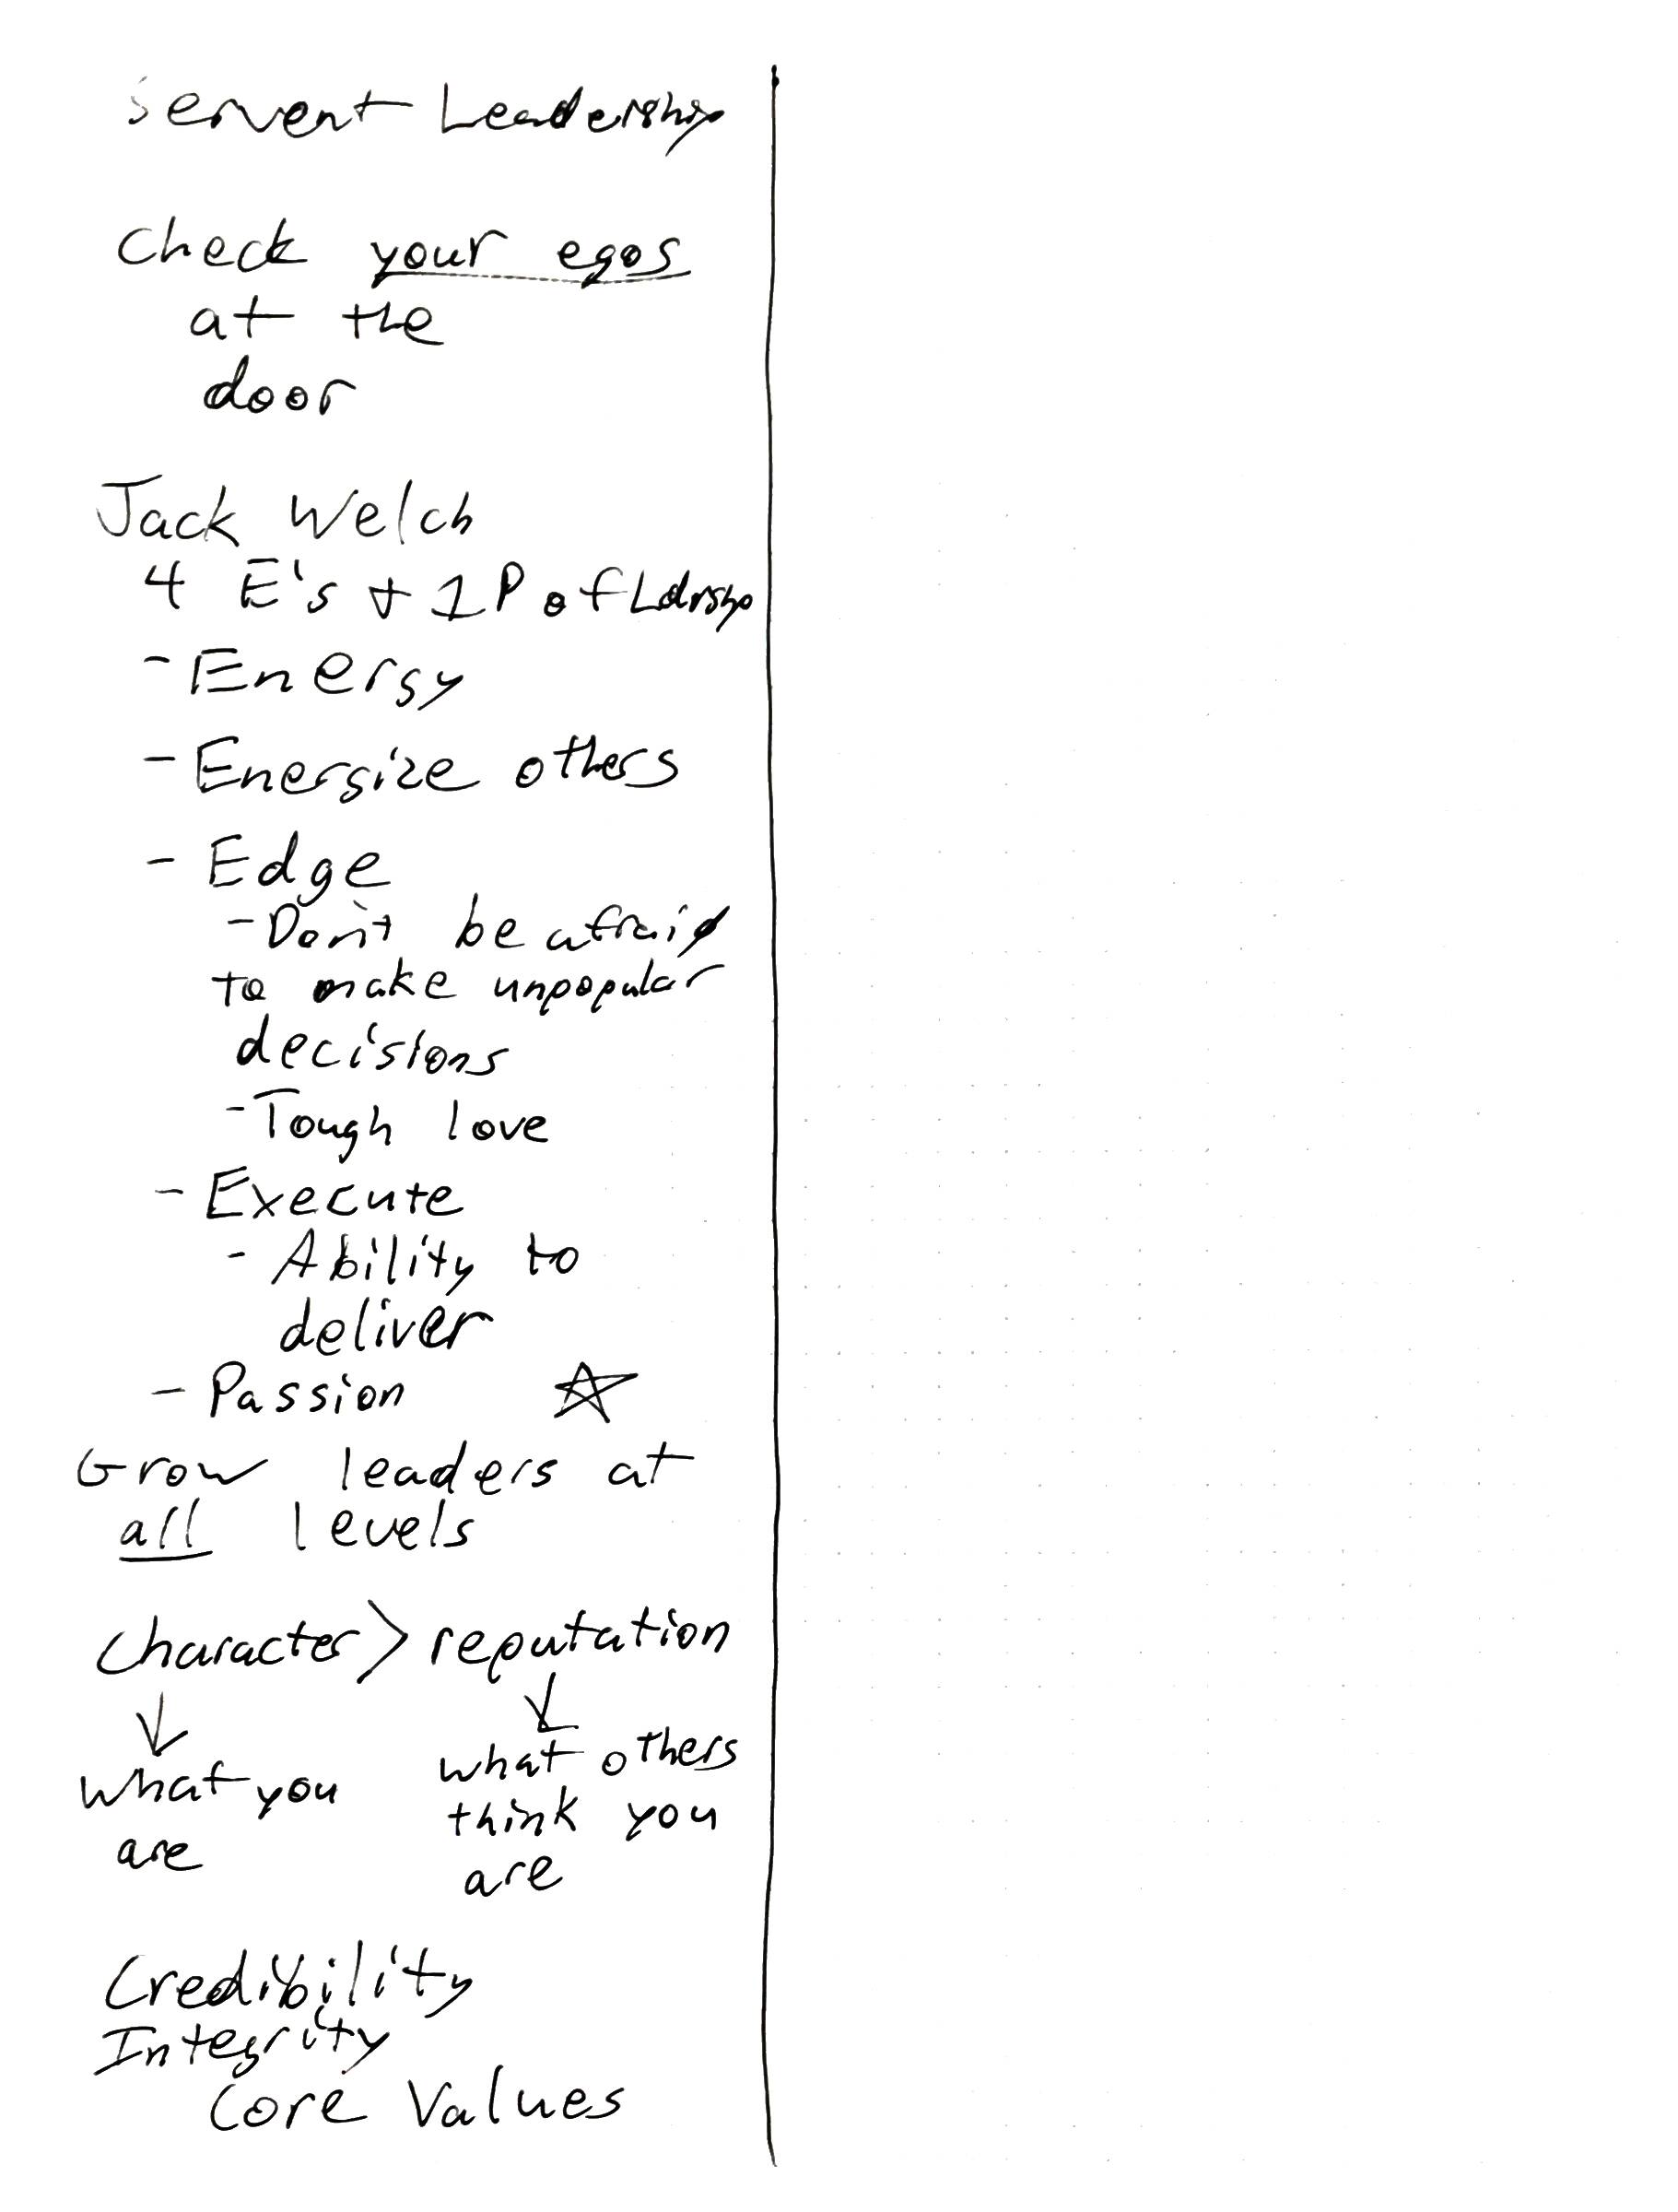 Servent Leadership
Check your egos
at the
door
Jack Welch
4 E's + 1 P of Ldrshp
- Energy
- Energize others
- Edge
- Don't be afraid
to make unpopular
decisions
- Tough love
- Execute
- Ability to
deliver
- Passion
Grow leaders at
all levels
Character > reputation
what you
are
what others
think you
are
Credibility
Integrity
Core Values